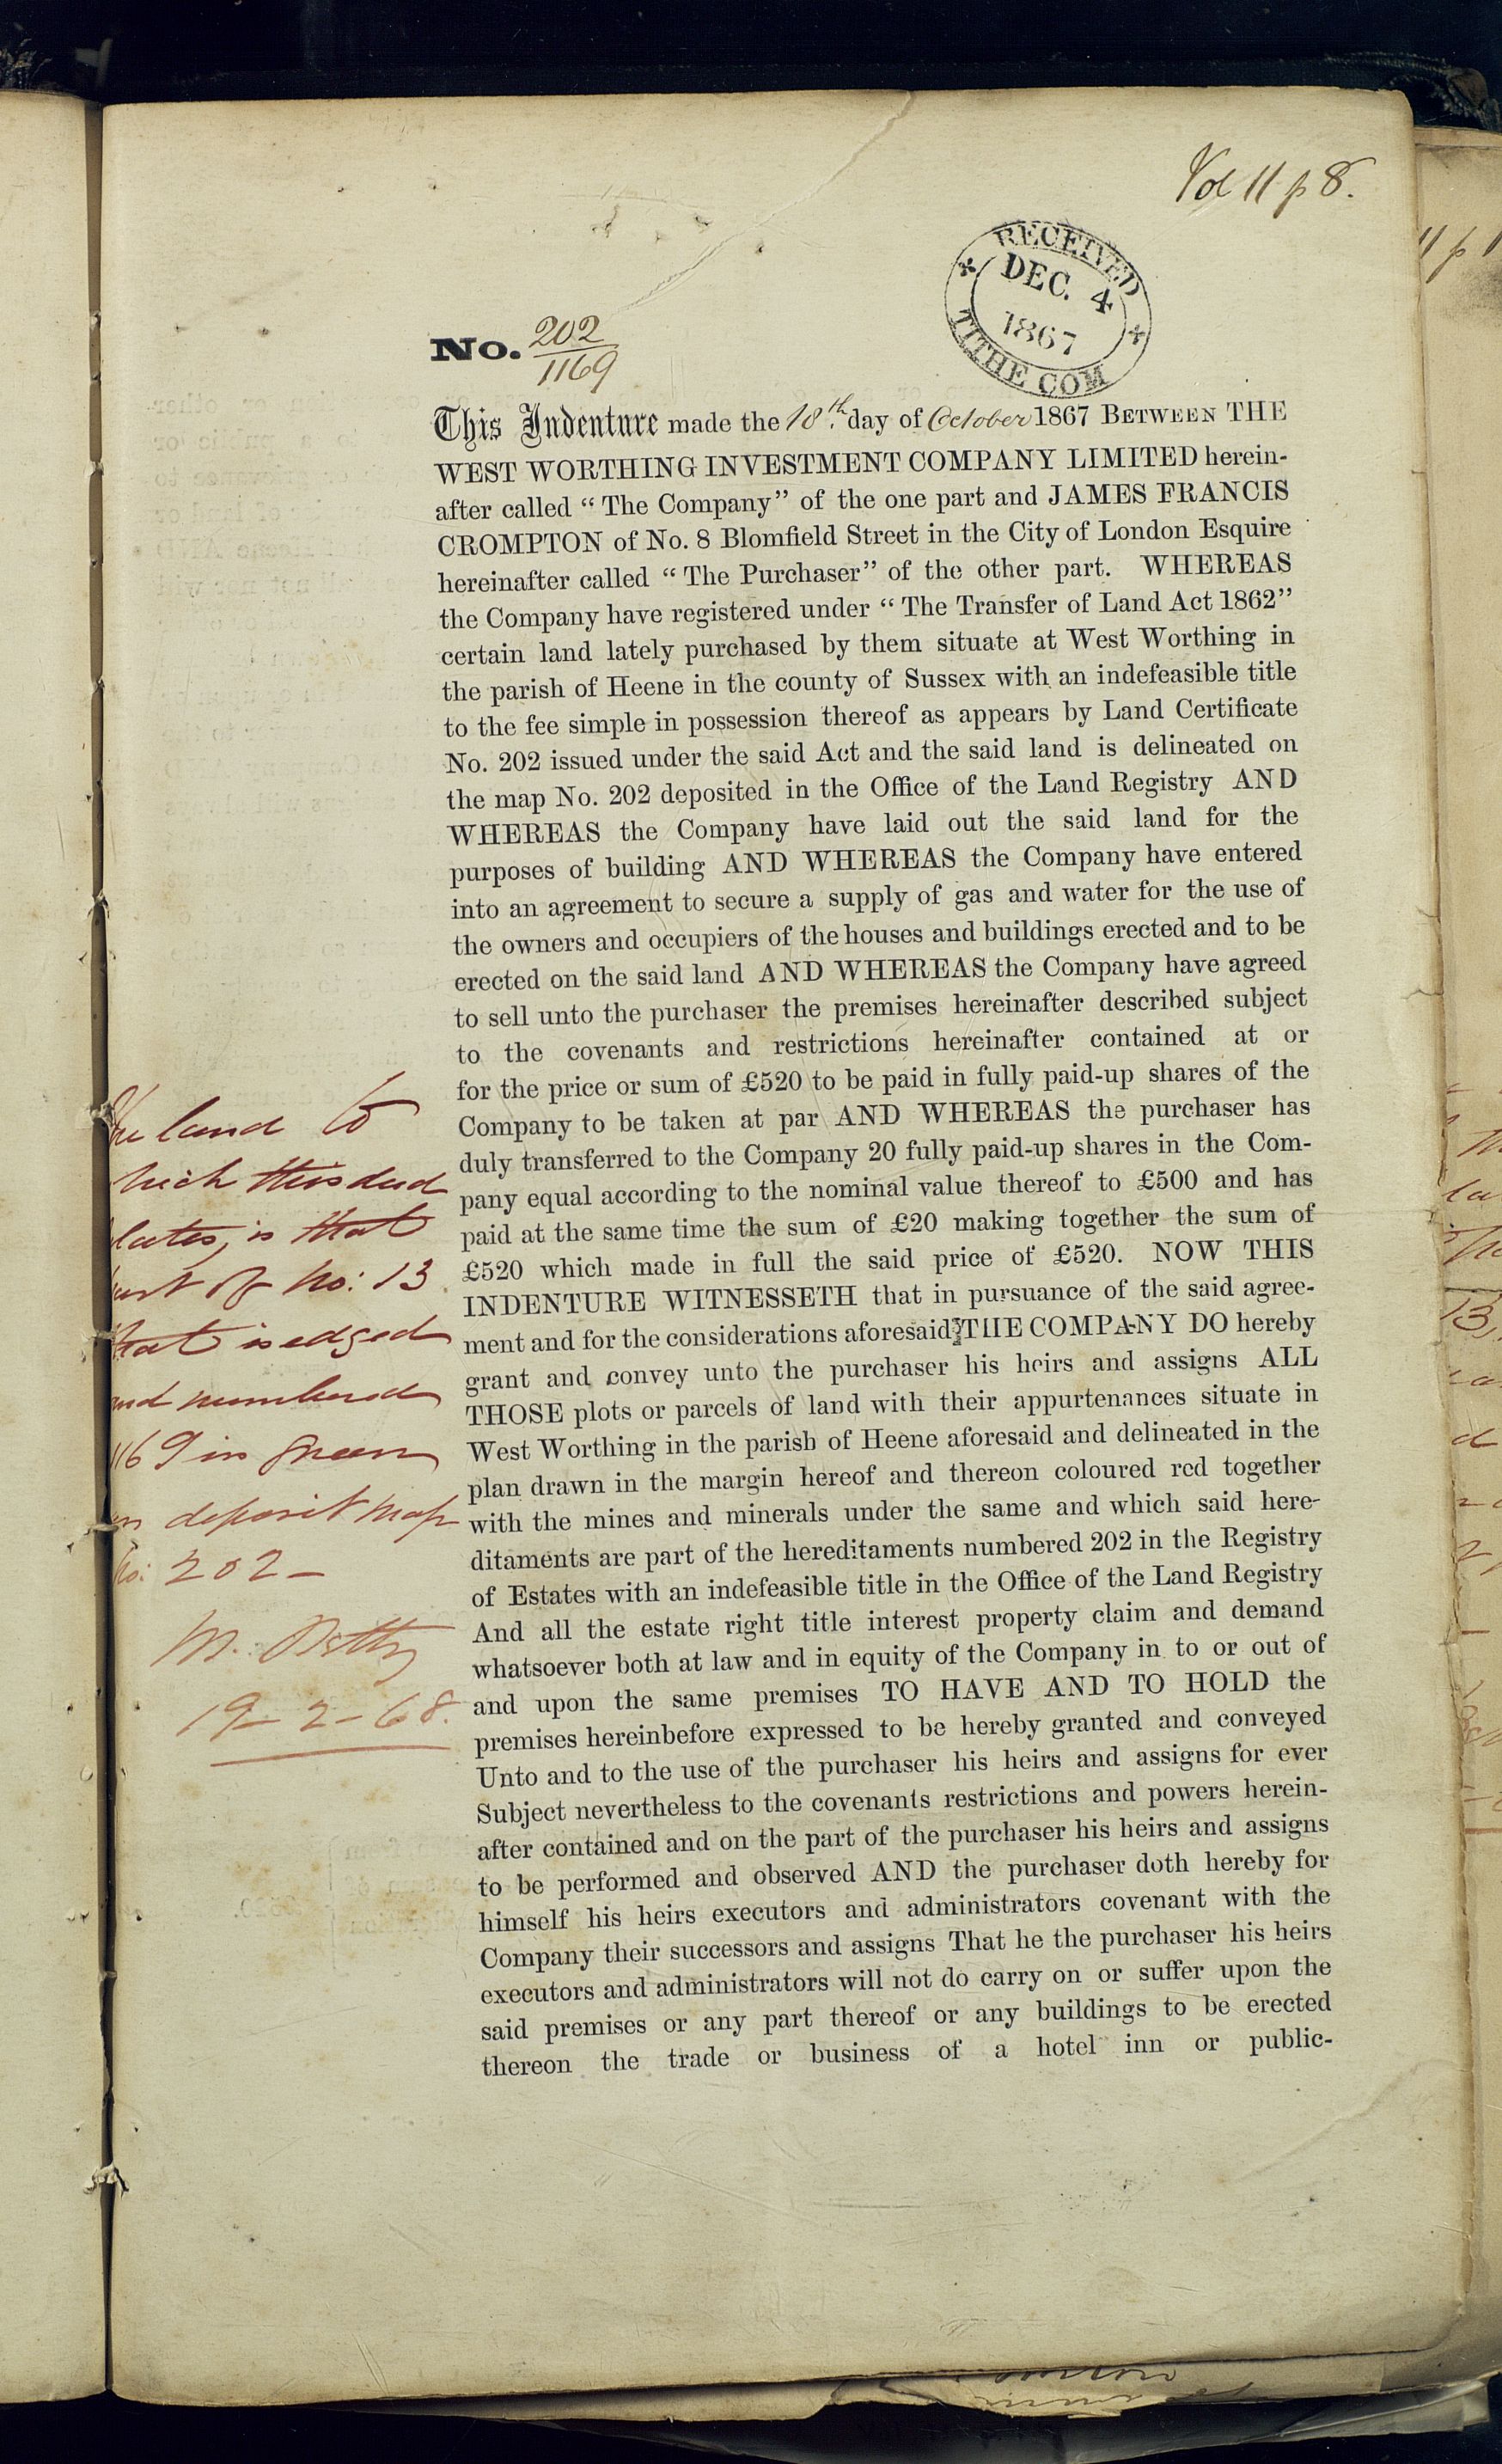 Vol 11 p 8.
RECEIVED
DEC. 4
1867
TITHE COM
No. 202
1169
This Indenture made the 18th. day of October 1867 BETWEEN THE
WEST WORTHING INVESTMENT COMPANY LIMITED herein-
after called “The Company” of the one part and JAMES FRANCIS
CROMPTON of No. 8 Blomfield Street in the City of London Esquire
hereinafter called “The Purchaser” of the other part. WHEREAS
the Company have registered under “The Transfer of Land Act 1862”
certain land lately purchased by them situate at West Worthing in
the parish of Heene in the county of Sussex with an indefeasible title
to the fee simple in possession thereof as appears by Land Certificate
No. 202 issued under the said Act and the said land is delineated on
the map No. 202 deposited in the Office of the Land Registry AND
WHEREAS the Company have laid out the said land for the
purposes of building AND WHEREAS the Company have entered
into an agreement to secure a supply of gas and water for the use of
the owners and occupiers of the houses and buildings erected and to be
erected on the said land AND WHEREAS the Company have agreed
to sell unto the purchaser the premises hereinafter described subject
to the covenants and restrictions hereinafter contained at or
for the price or sum of £520 to be paid in fully paid-up shares of the
Company to be taken at par AND WHEREAS the purchaser has
duly transferred to the Company 20 fully paid-up shares in the Com-
pany equal according to the nominal value thereof to £500 and has
paid at the same time the sum of £20 making together the sum of
£520 which made in full the said price of £520. NOW THIS
INDENTURE WITNESSETH that in pursuance of the said agree-
ment and for the considerations aforesaid THE COMPANY DO hereby
grant and convey unto the purchaser his heirs and assigns ALL
THOSE plots or parcels of land with their appurtenances situate in
West Worthing in the parish of Heene aforesaid and delineated in the
plan drawn in the margin hereof and thereon coloured red together
with the mines and minerals under the same and which said here-
ditaments are part of the hereditaments numbered 202 in the Registry
of Estates with an indefeasible title in the Office of the Land Registry
And all the estate right title interest property claim and demand
whatsoever both at law and in equity of the Company in to or out of
and upon the same premises TO HAVE AND TO HOLD the
premises hereinbefore expressed to be hereby granted and conveyed
Unto and to the use of the purchaser his heirs and assigns for ever
Subject nevertheless to the covenants restrictions and powers herein-
after contained and on the part of the purchaser his heirs and assigns
to be performed and observed AND the purchaser doth hereby for
himself his heirs executors and administrators covenant with the
Company their successors and assigns That he the purchaser his heirs
executors and administrators will not do carry on or suffer upon the
said premises or any part thereof or any buildings to be erected
thereon the trade or business of a hotel inn or public-
The land to
hich this deed
lates, is that
art of No: 13
that is edged
and numbered
1169 in green
on deposit map
No: 202 –
19 – 2 – 68.